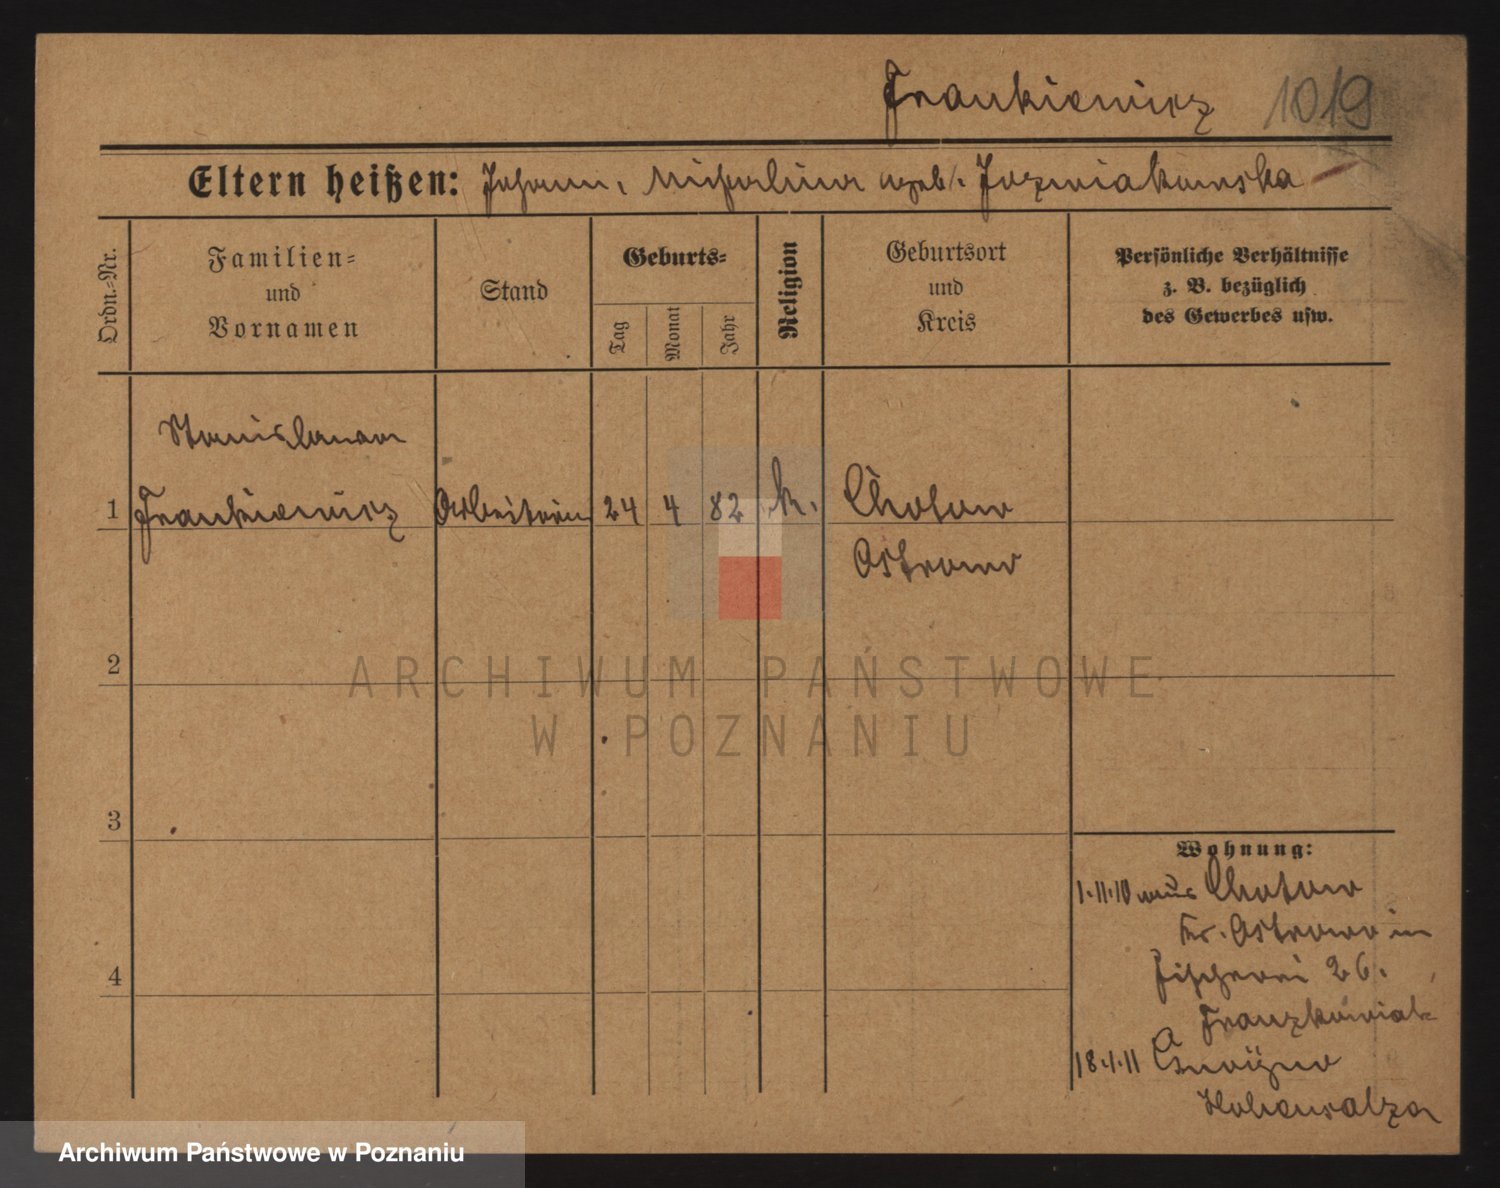 Frankiewicz 1019
Eltern heißen: Johann, Michalina geb. Jozwiakowska
Ordn.-Nr.
Familien-
und
Vornamen
Stand
Geburts-
Tag
Monat
Jahr
Religion
Geburtsort
und
Kreis
Persönliche Verhältnisse
z. B. bezüglich
des Gewerbes usw.
Stanislawa
1 Frankiewicz Arbeiterin 24 4 82 k. Chotow
Ostrowo
2
ARCHIWUM PAŃSTWOWE
W POZNANIU
3
4
Wohnung:
1.11.10 aus Chotow
Kr. Ostrowo in
Fischerei 26.
Franzkowiak
18.1.11
Hohensalza
Archiwum Państwowe w Poznaniu